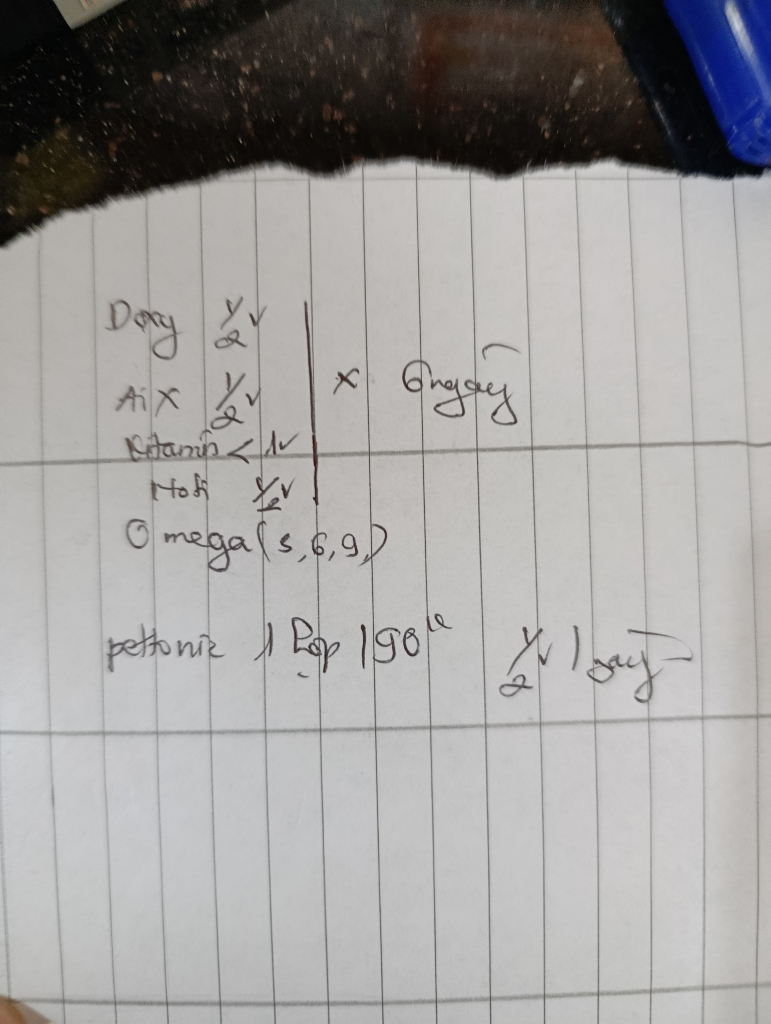 Doxy 1/2v
Aix 1/2v
Vitamin C 1v
1/2v
x 6 ngày
Omega (3,6,9)
pettonic 1 lọ /90
1/2v / ngày